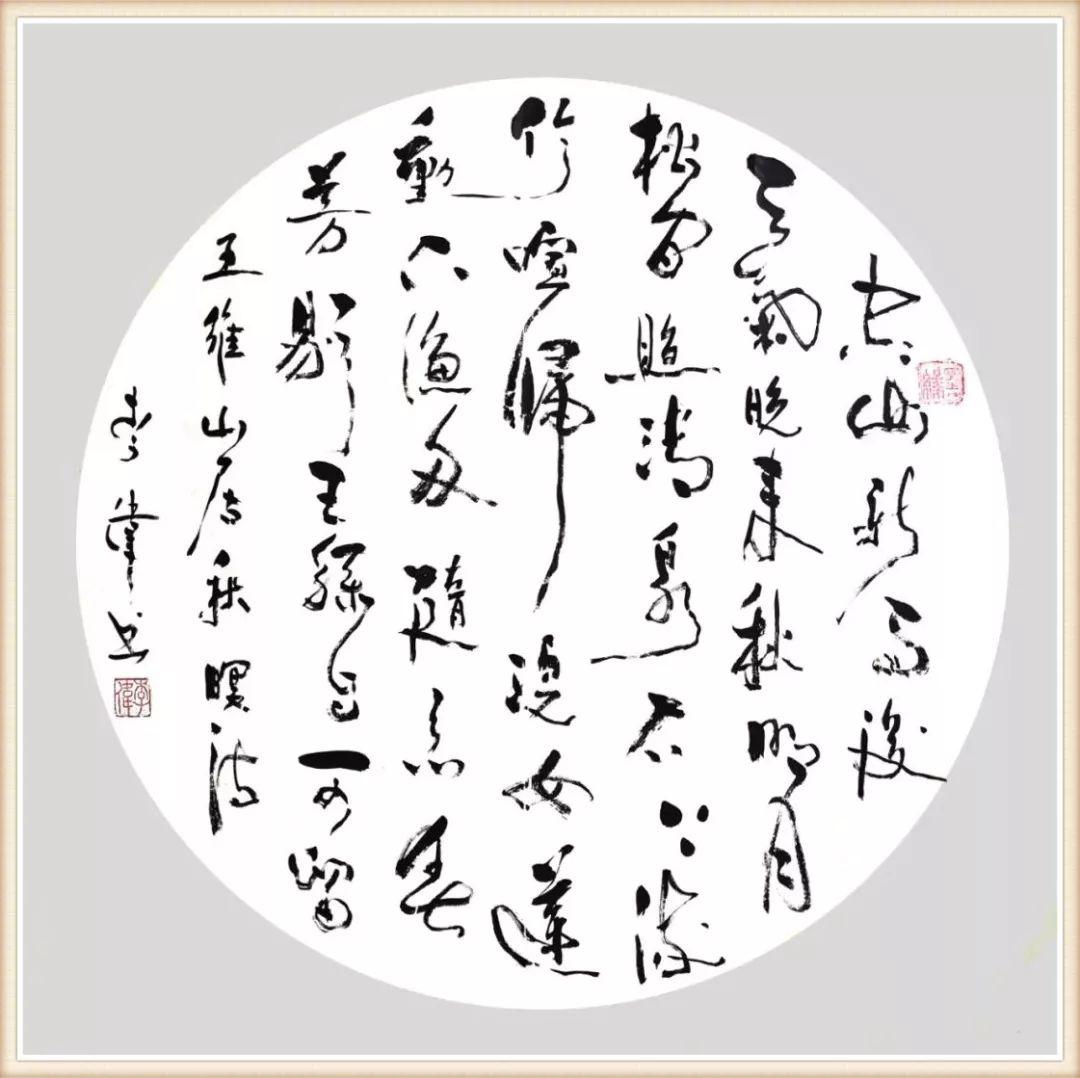 空山新雨後
天氣晚来秋明月
松間照清泉石上流
竹喧歸浣女蓮
動下漁舟隨意春
芳歇王孫自可留
王維山居秋暝詩
李偉书
李偉